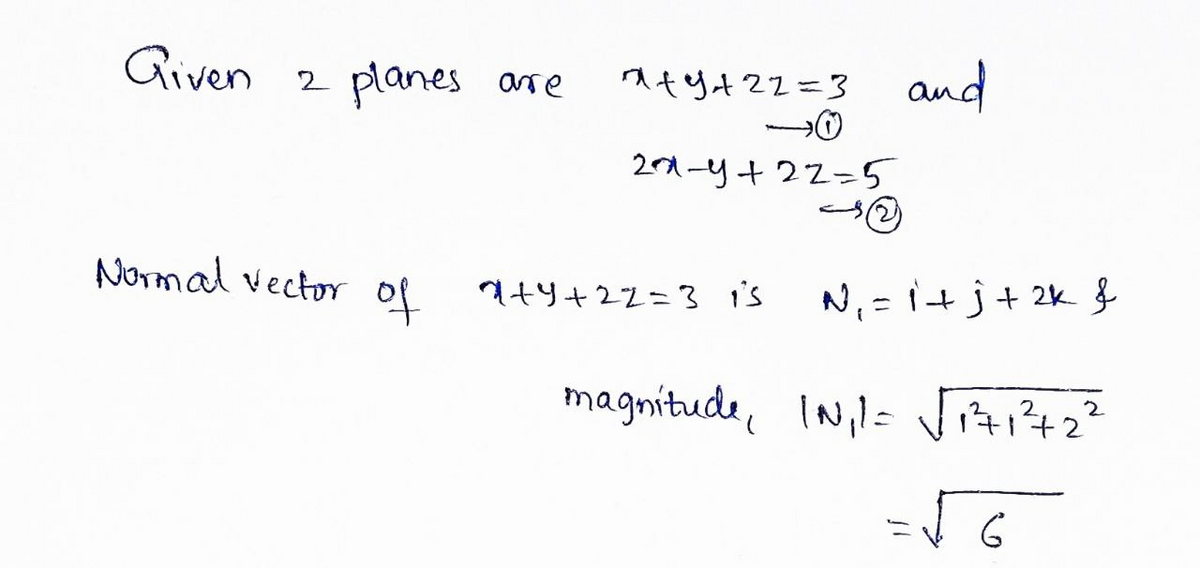 Given 2 planes are x+y+2z=3 and
→①
2x-y+2z=5
→②
Normal vector of x+y+2z=3 is N₁=i+j+2k &
magnitude, |N₁|= √1²+1²+2²
=√6